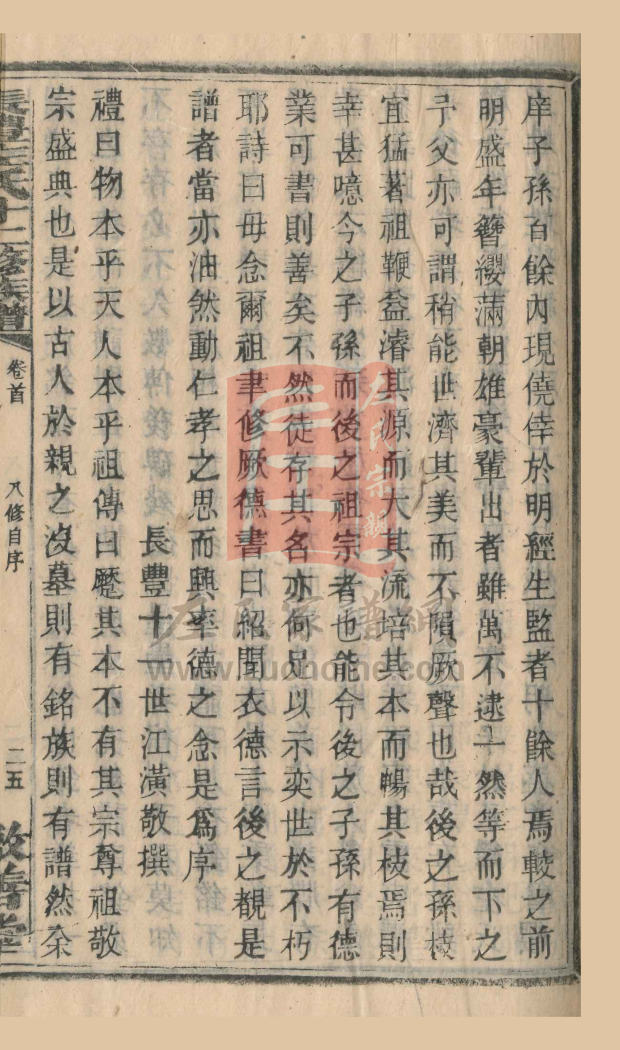 庠子孫百餘內現僥倖於明經生監者十餘人焉較之前
明盛年簪纓滿朝雄豪輩出者雖萬不逮一然等而下之
予父亦可謂稍能世濟其美而不隕厥聲也哉後之孫枝
宜猛著祖鞭益濬其源而大其流培其本而暢其枝焉則
幸甚噫今之子孫而後之祖宗者也能令後之子孫有德
業可書則善矣不然徒存其名亦何足以示奕世於不朽
耶詩曰毋念爾祖聿修厥德書曰紹聞衣德言後之覩是
譜者當亦油然動仁孝之思而興率德之念是爲序
長豐十一世江潢敬撰
禮曰物本乎天人本乎祖傳曰蹷其本不有其宗尊祖敬
宗盛典也是以古人於親之沒墓則有銘族則有譜然余
長豐左氏十二修族譜
卷首
八修自序
二五
敦善堂
左氏宗親
左氏家譜網